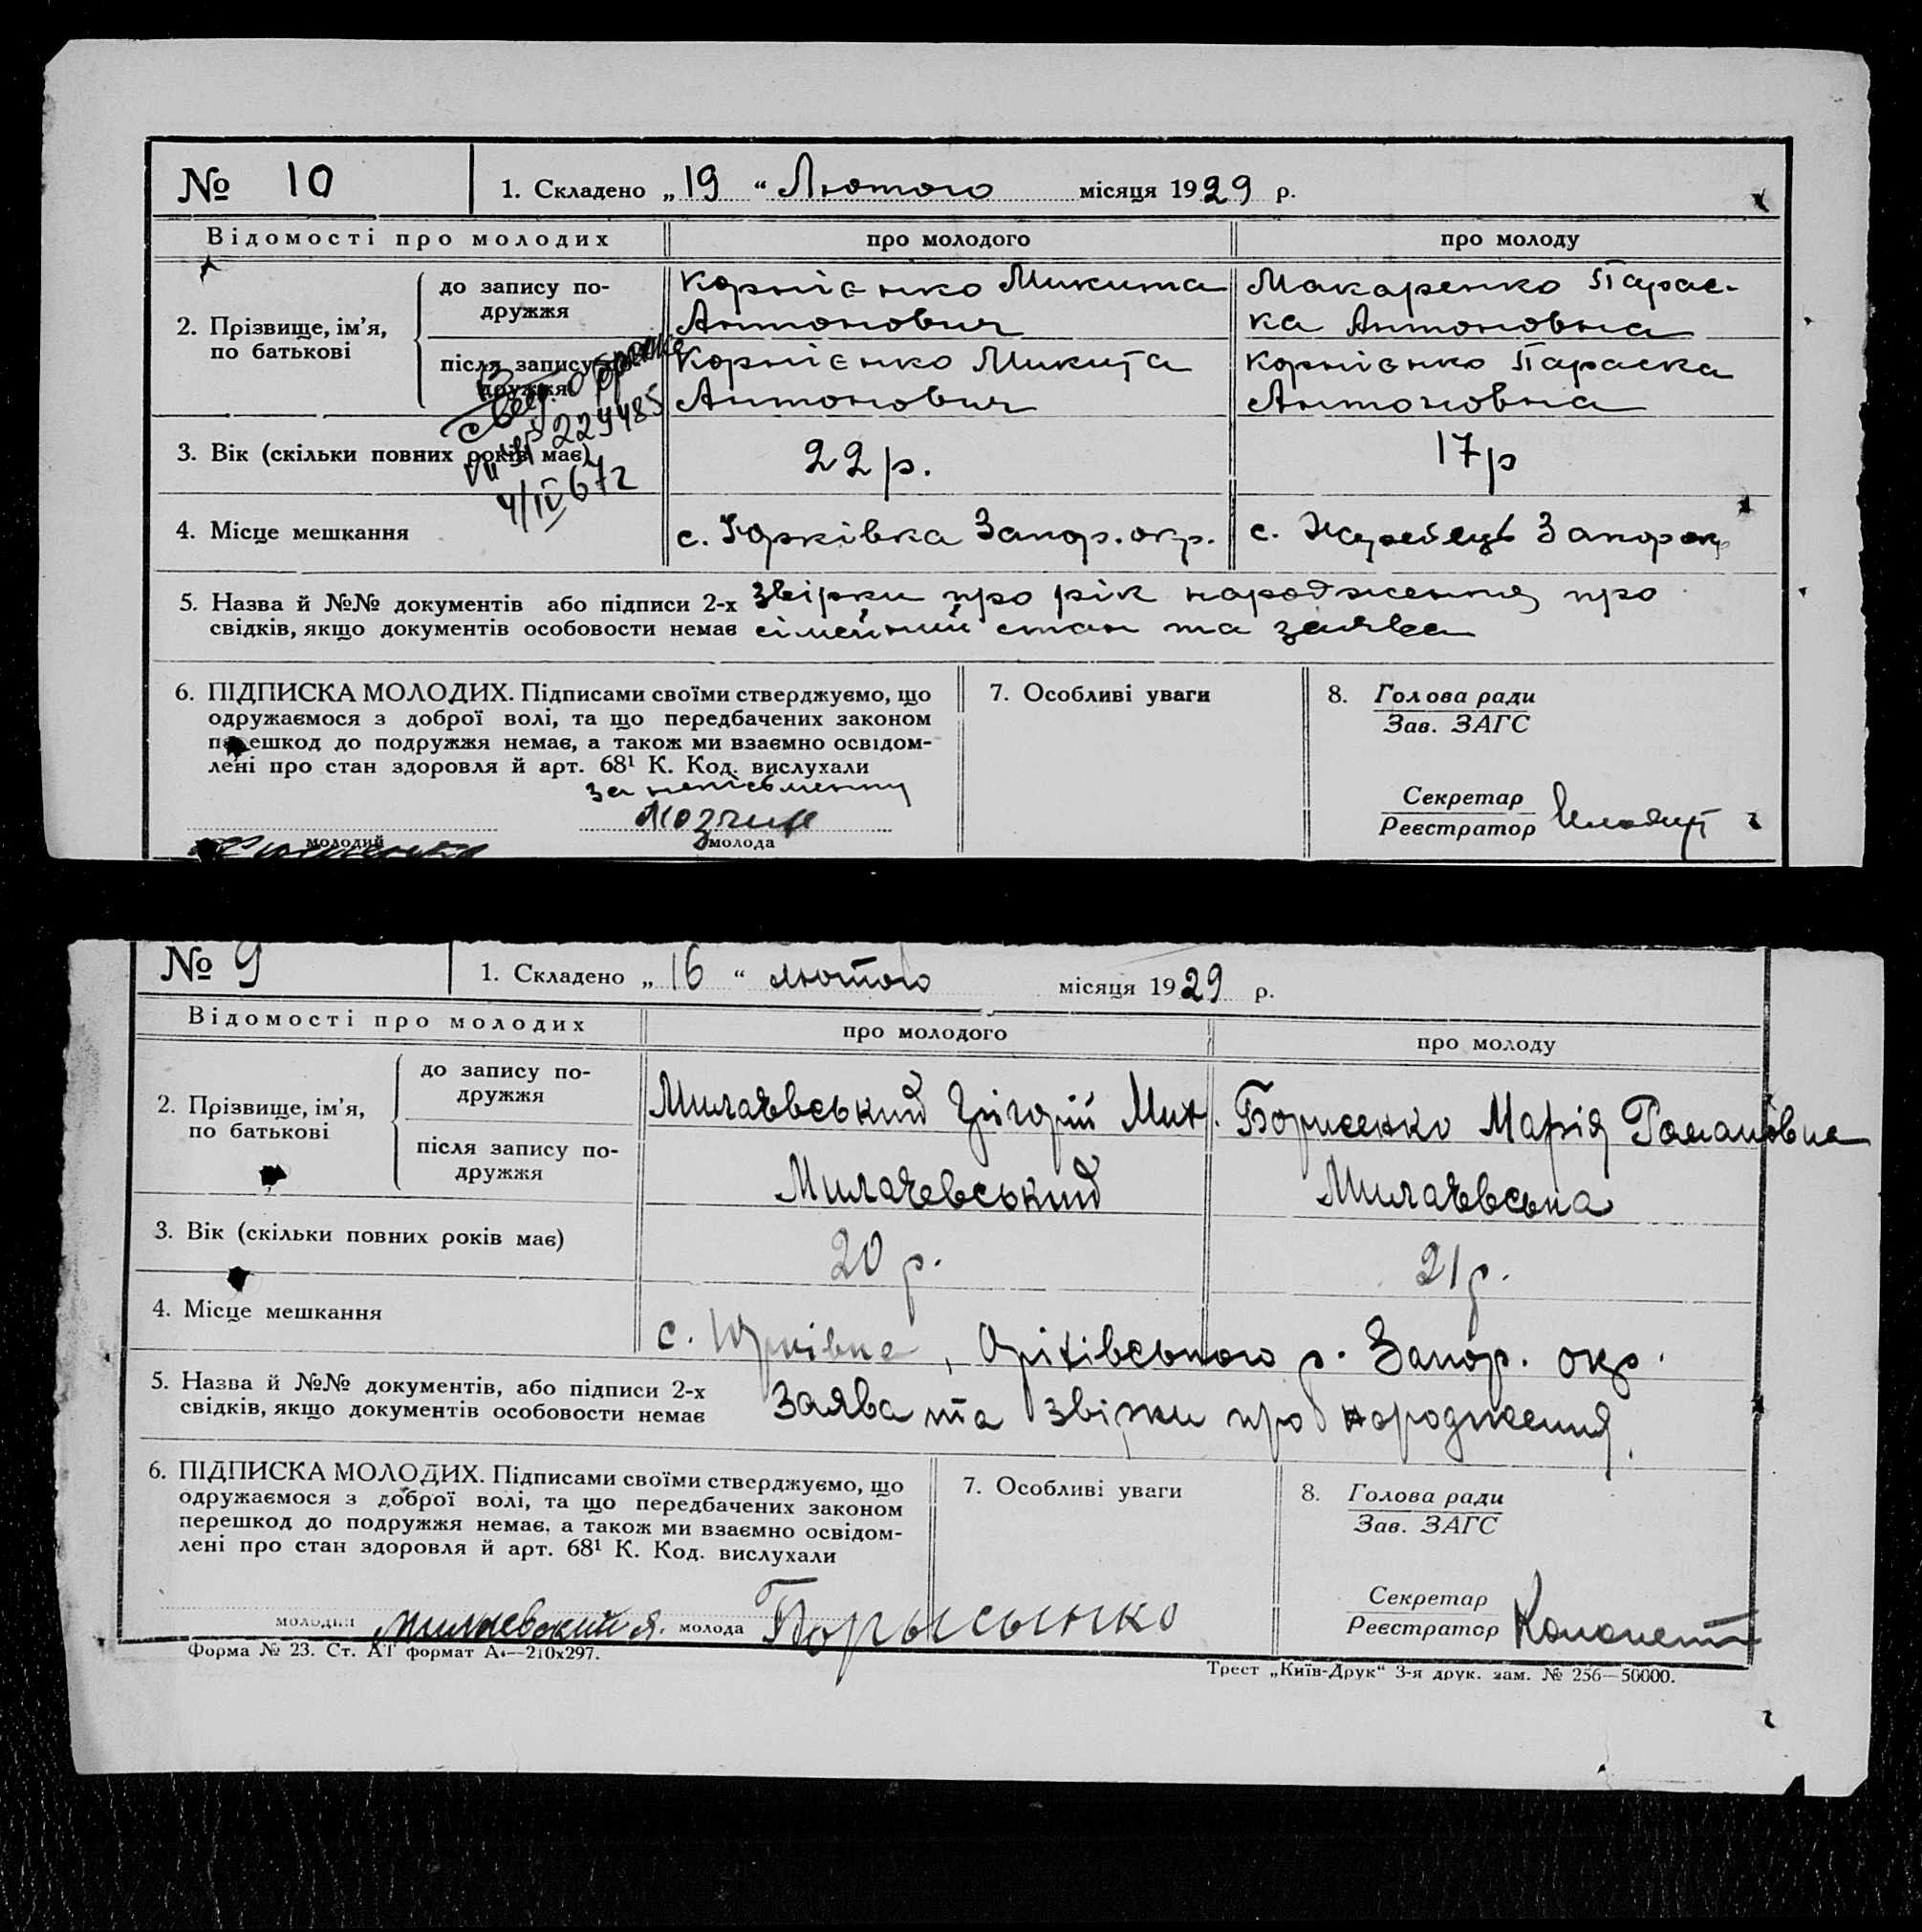 № 10
1. Складено „19“ Лютого місяця 1929 р.
Відомості про молодих
про молодого
про молоду
2. Прізвище, ім’я, по батькові
до запису по-
дружжя
Корнієнко Микита
Антонович
Макаренко Парас-
ка Антоновна
після запису по-
дружжя
Корнієнко Микита
Антонович
Корнієнко Параска
Антоновна
Свид. о браке
VII 229485
4/IV 67 г
3. Вік (скільки повних років має)
22 р.
17 р
4. Місце мешкання
с. Юрківка Запор. окр.
с. Жеребець Запор окр
5. Назва й №№ документів або підписи 2-х
свідків, якщо документів особовости немає
звірки про рік народження, про
сімейний стан та заява
6. ПІДПИСКА МОЛОДИХ. Підписами своїми стверджуємо, що
одружаємося з доброї волі, та що передбачених законом
перешкод до подружжя немає, а також ми взаємно освідом-
лені про стан здоровля й арт. 68¹ К. Код. вислухали
за неписьменну
молодий
молода
7. Особливі уваги
8. Голова ради
Зав. ЗАГС
Секретар
Реєстратор
№ 9
1. Складено „16“ лютого місяця 1929 р.
Відомості про молодих
про молодого
про молоду
2. Прізвище, ім’я,
по батькові
до запису по-
дружжя
Милаєвський Григорій Мит.
Борисенко Марія Романовна
після запису по-
дружжя
Милаєвський
Милаєвська
3. Вік (скільки повних років має)
20 р.
21 р.
4. Місце мешкання
с. Юрківка, Оріхівського р. Запор. окр.
5. Назва й №№ документів, або підписи 2-х
свідків, якщо документів особовости немає
Заява та звірки про народження.
6. ПІДПИСКА МОЛОДИХ. Підписами своїми стверджуємо, що
одружаємося з доброї волі, та що передбачених законом
перешкод до подружжя немає, а також ми взаємно освідом-
лені про стан здоровля й арт. 68¹ К. Код. вислухали
молодий Милаевский
молода Борысынко
7. Особливі уваги
8. Голова ради
Зав. ЗАГС
Секретар
Реєстратор
Форма № 23. Ст. АТ формат А₄—210х297.
Трест „Київ-Друк“ 3-я друк. зам. № 256—50000.